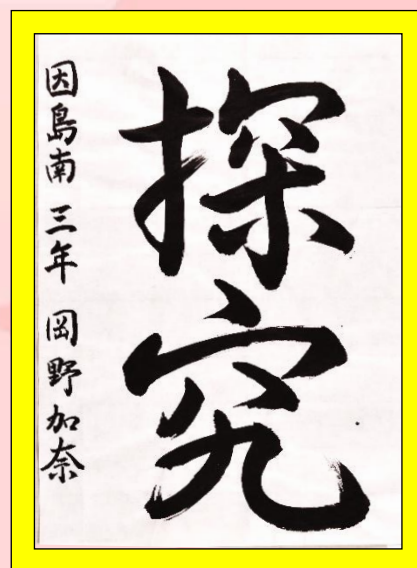 探究
因島南 三年 岡野加奈